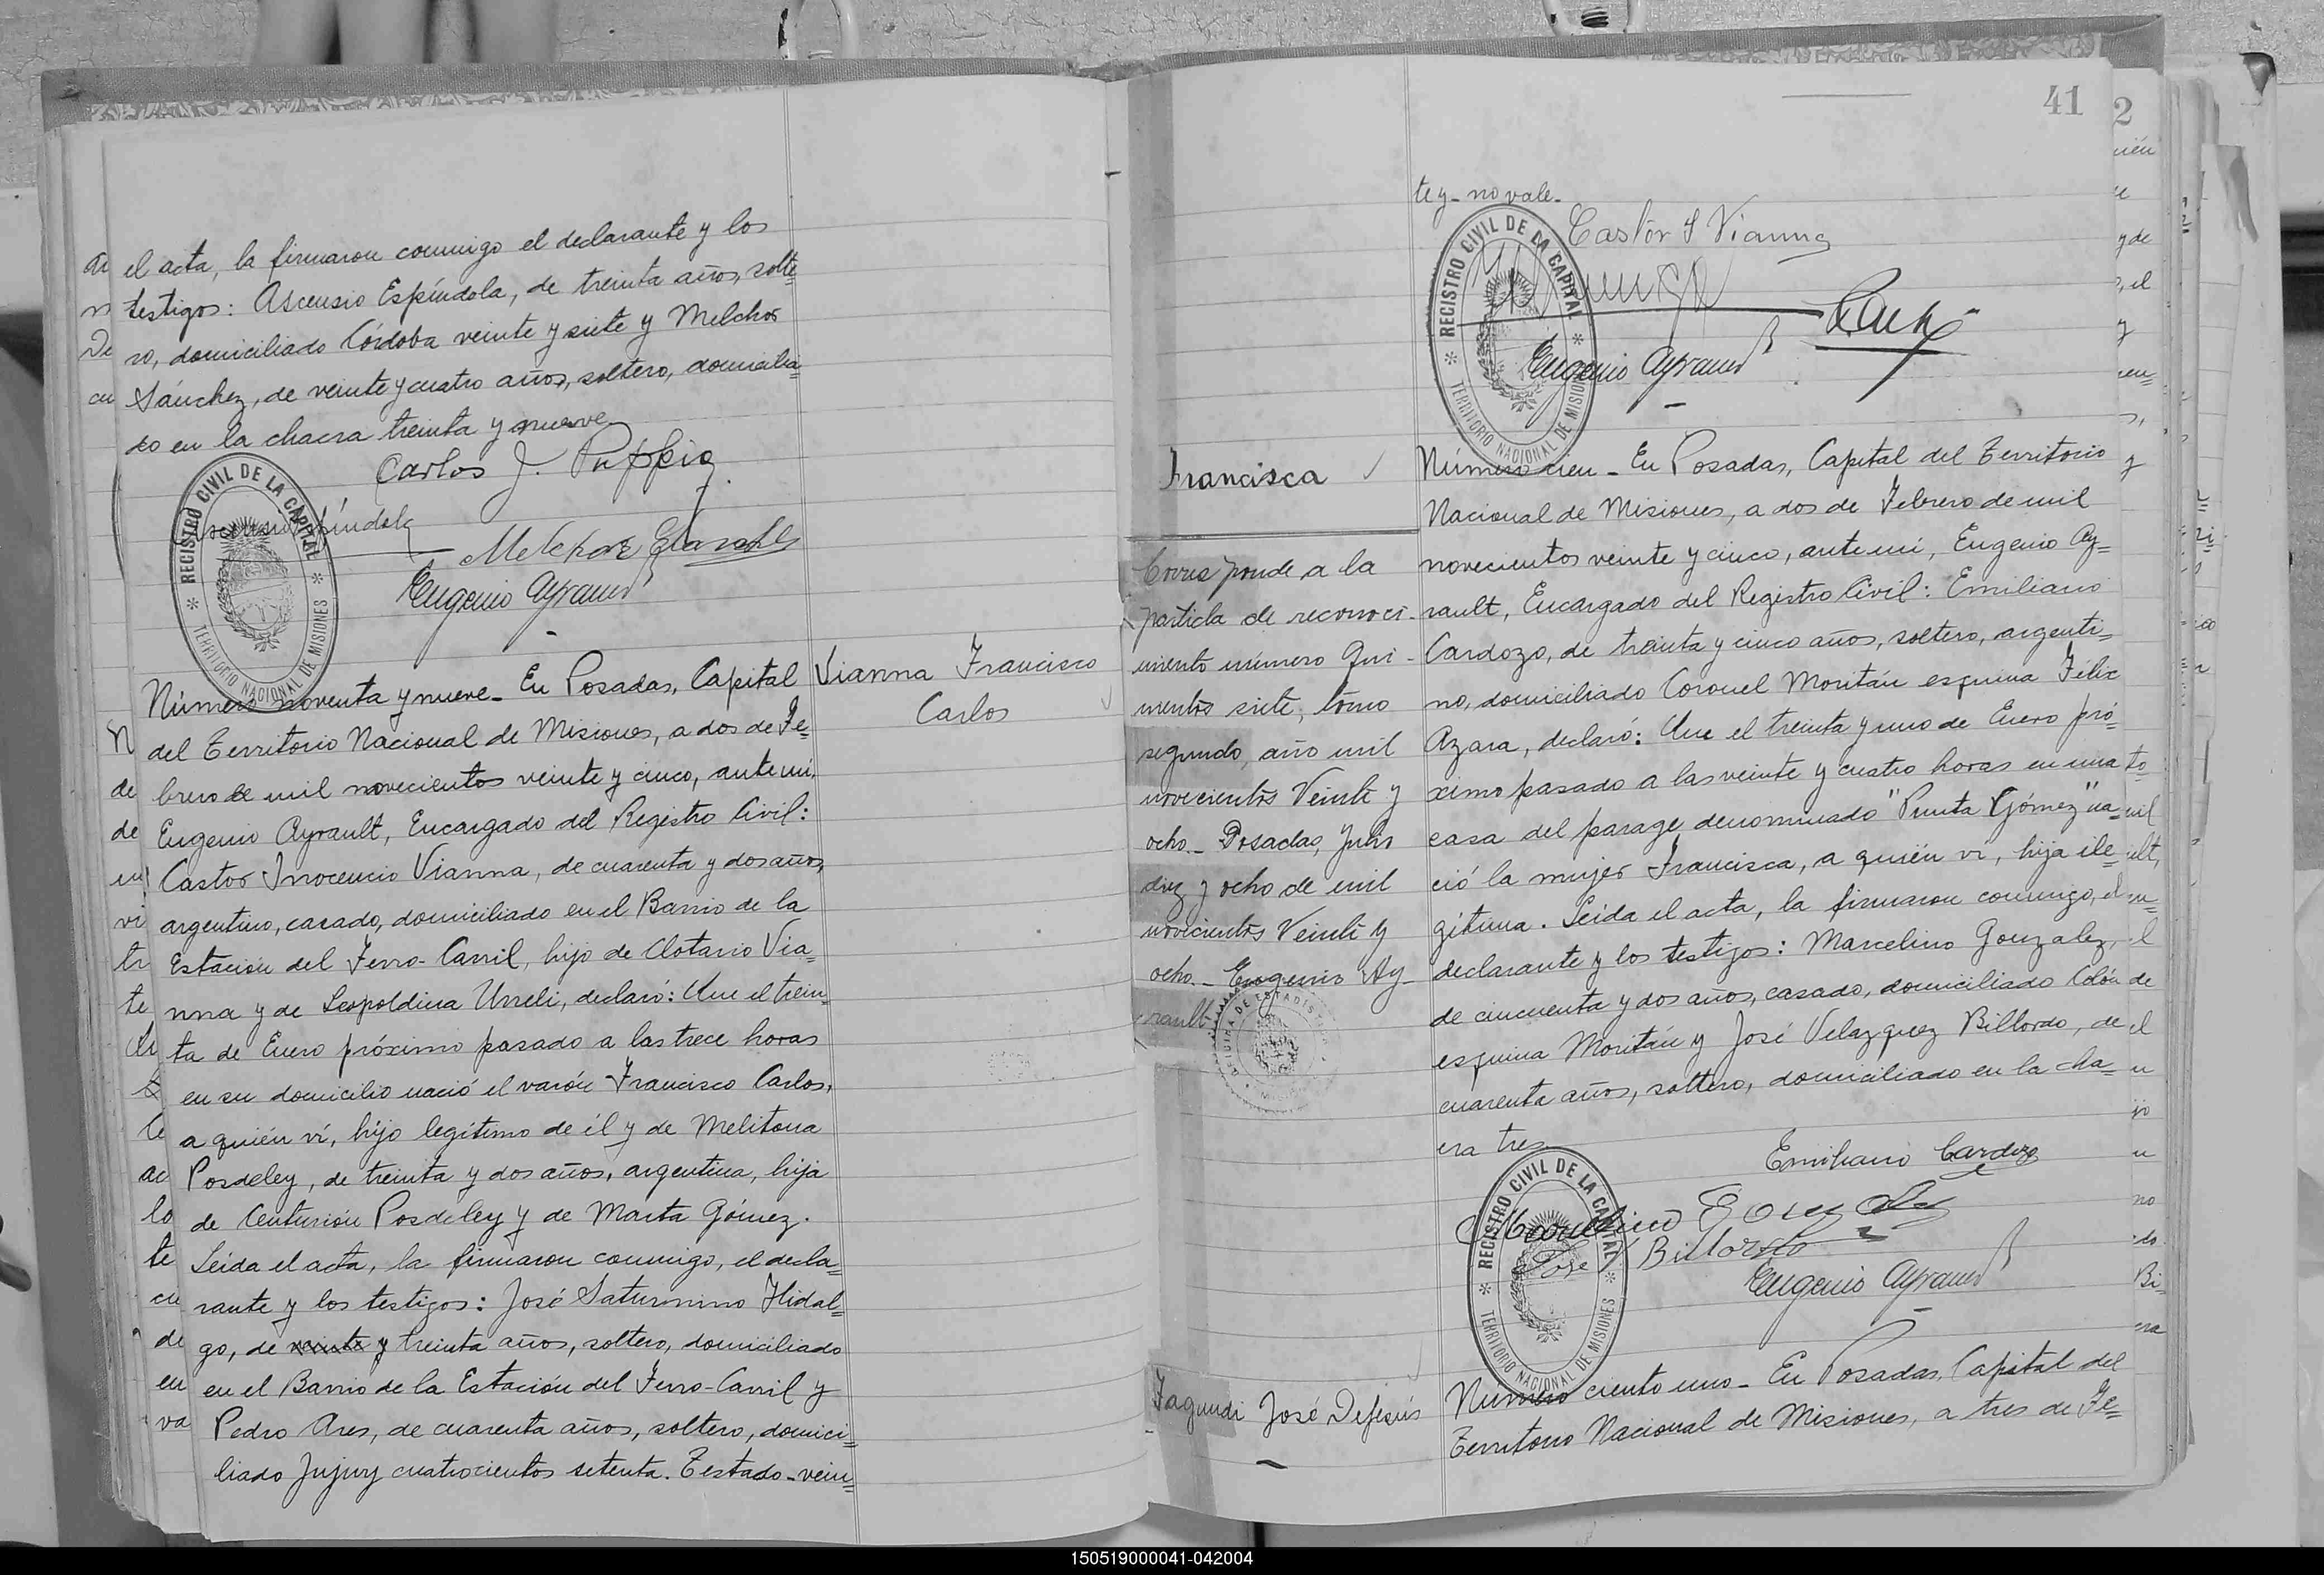 el acta, la firmaron conmigo el declarante y los
testigos: Ascensio Espíndola, de treinta años, solte=
ro, domiciliado Córdoba veinte y siete y Melchor
Sánchez, de veinte y cuatro años, soltero, domicilia=
do en la chacra treinta y nueve
Carlos J. Puppio
REGISTRO CIVIL DE LA CAPITAL
TERRITORIO NACIONAL DE MISIONES
Melchor
Eugenio Ayrault
Vianna Francisco
Carlos
Número noventa y nueve_ En Posadas, Capital
del Territorio Nacional de Misiones, a dos de Fe=
brero de mil novecientos veinte y cinco, ante mí,
Eugenio Ayrault, Encargado del Registro Civil:
Castor Inocencio Vianna, de cuarenta y dos años,
argentino, casado, domiciliado en el Barrio de la
Estación del Ferro-Carril, hijo de Clotario Via=
nna y de Leopoldina Urreli, declaró: Que el trein=
ta de Enero próximo pasado a las trece horas
en su domicilio nació el varón Francisco Carlos,
a quién ví, hijo legítimo de él y de Melitona
Posdeley, de treinta y dos años, argentina, hija
de Centurión Posdeley y de Marta Gómez.
Leida el acta, la firmaron conmigo, el decla=
rante y los testigos: José Saturnino Hidal=
go, de veinte y treinta años, soltero, domiciliado
en el Barrio de la Estación del Ferro-Carril y
Pedro Ares, de cuarenta años, soltero, domici=
liado Jujuy cuatrocientos setenta. Testado-vein=
41
te y_ no vale_
Castor I Vianna
REGISTRO CIVIL DE LA CAPITAL
TERRITORIO NACIONAL DE MISIONES
Eugenio Ayrault
Francisca
Corresponde a la
partida de reconoci-
miento número Qui-
nientos siete, tomo
segundo, año mil
novecientos Veinte y
ocho_ Posadas, Julio
diez y ocho de mil
novecientos Veinte y
ocho_ Eugenio Ay-
rault
OFICINA DE ESTADISTICA
MISIONES
Número cien_ En Posadas, Capital del Territorio
Nacional de Misiones, a dos de Febrero de mil
novecientos veinte y cinco, ante mí, Eugenio Ay=
rault, Encargado del Registro Civil: Emiliano
Cardozo, de treinta y cinco años, soltero, argenti=
no, domiciliado Coronel Moritán esquina Félix
Azara, declaró: Que el treinta y uno de Enero pró=
ximo pasado a las veinte y cuatro horas en una
casa del parage denominado "Punta Gómez" na=
ció la mujer Francisca, a quién ví, hija ile=
gítima. Leida el acta, la firmaron conmigo, el
declarante y los testigos: Marcelino Gonzalez,
de cincuenta y dos años, casado, domiciliado Colón
esquina Moritán y José Velazquez Billordo, de
cuarenta años, soltero, domiciliado en la cha=
cra tres
Emiliano Cardozo
REGISTRO CIVIL DE LA CAPITAL
TERRITORIO NACIONAL DE MISIONES
Marcelino Gonzalez
José V Billordo
Eugenio Ayrault
Fagundi José DeJesús
Número ciento uno_ En Posadas, Capital del
Territorio Nacional de Misiones, a tres de Fe=
150519000041-042004